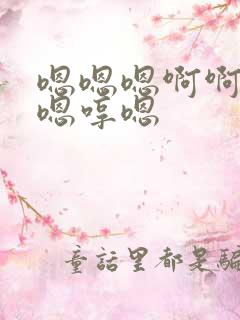 嗯嗯嗯啊啊
嗯哼嗯
童話里都是騙